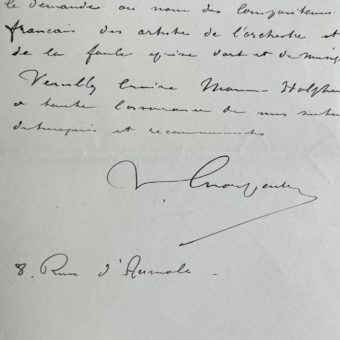 le demande au nom des Compositeurs
français des artistes de l'orchestre et
de la foule éprise d'art et de musiq
Veuillez croire Mon Halphen
à toute l'assurance de mes sentim
distingués et reconnaissants
8. Rue d'Aumale